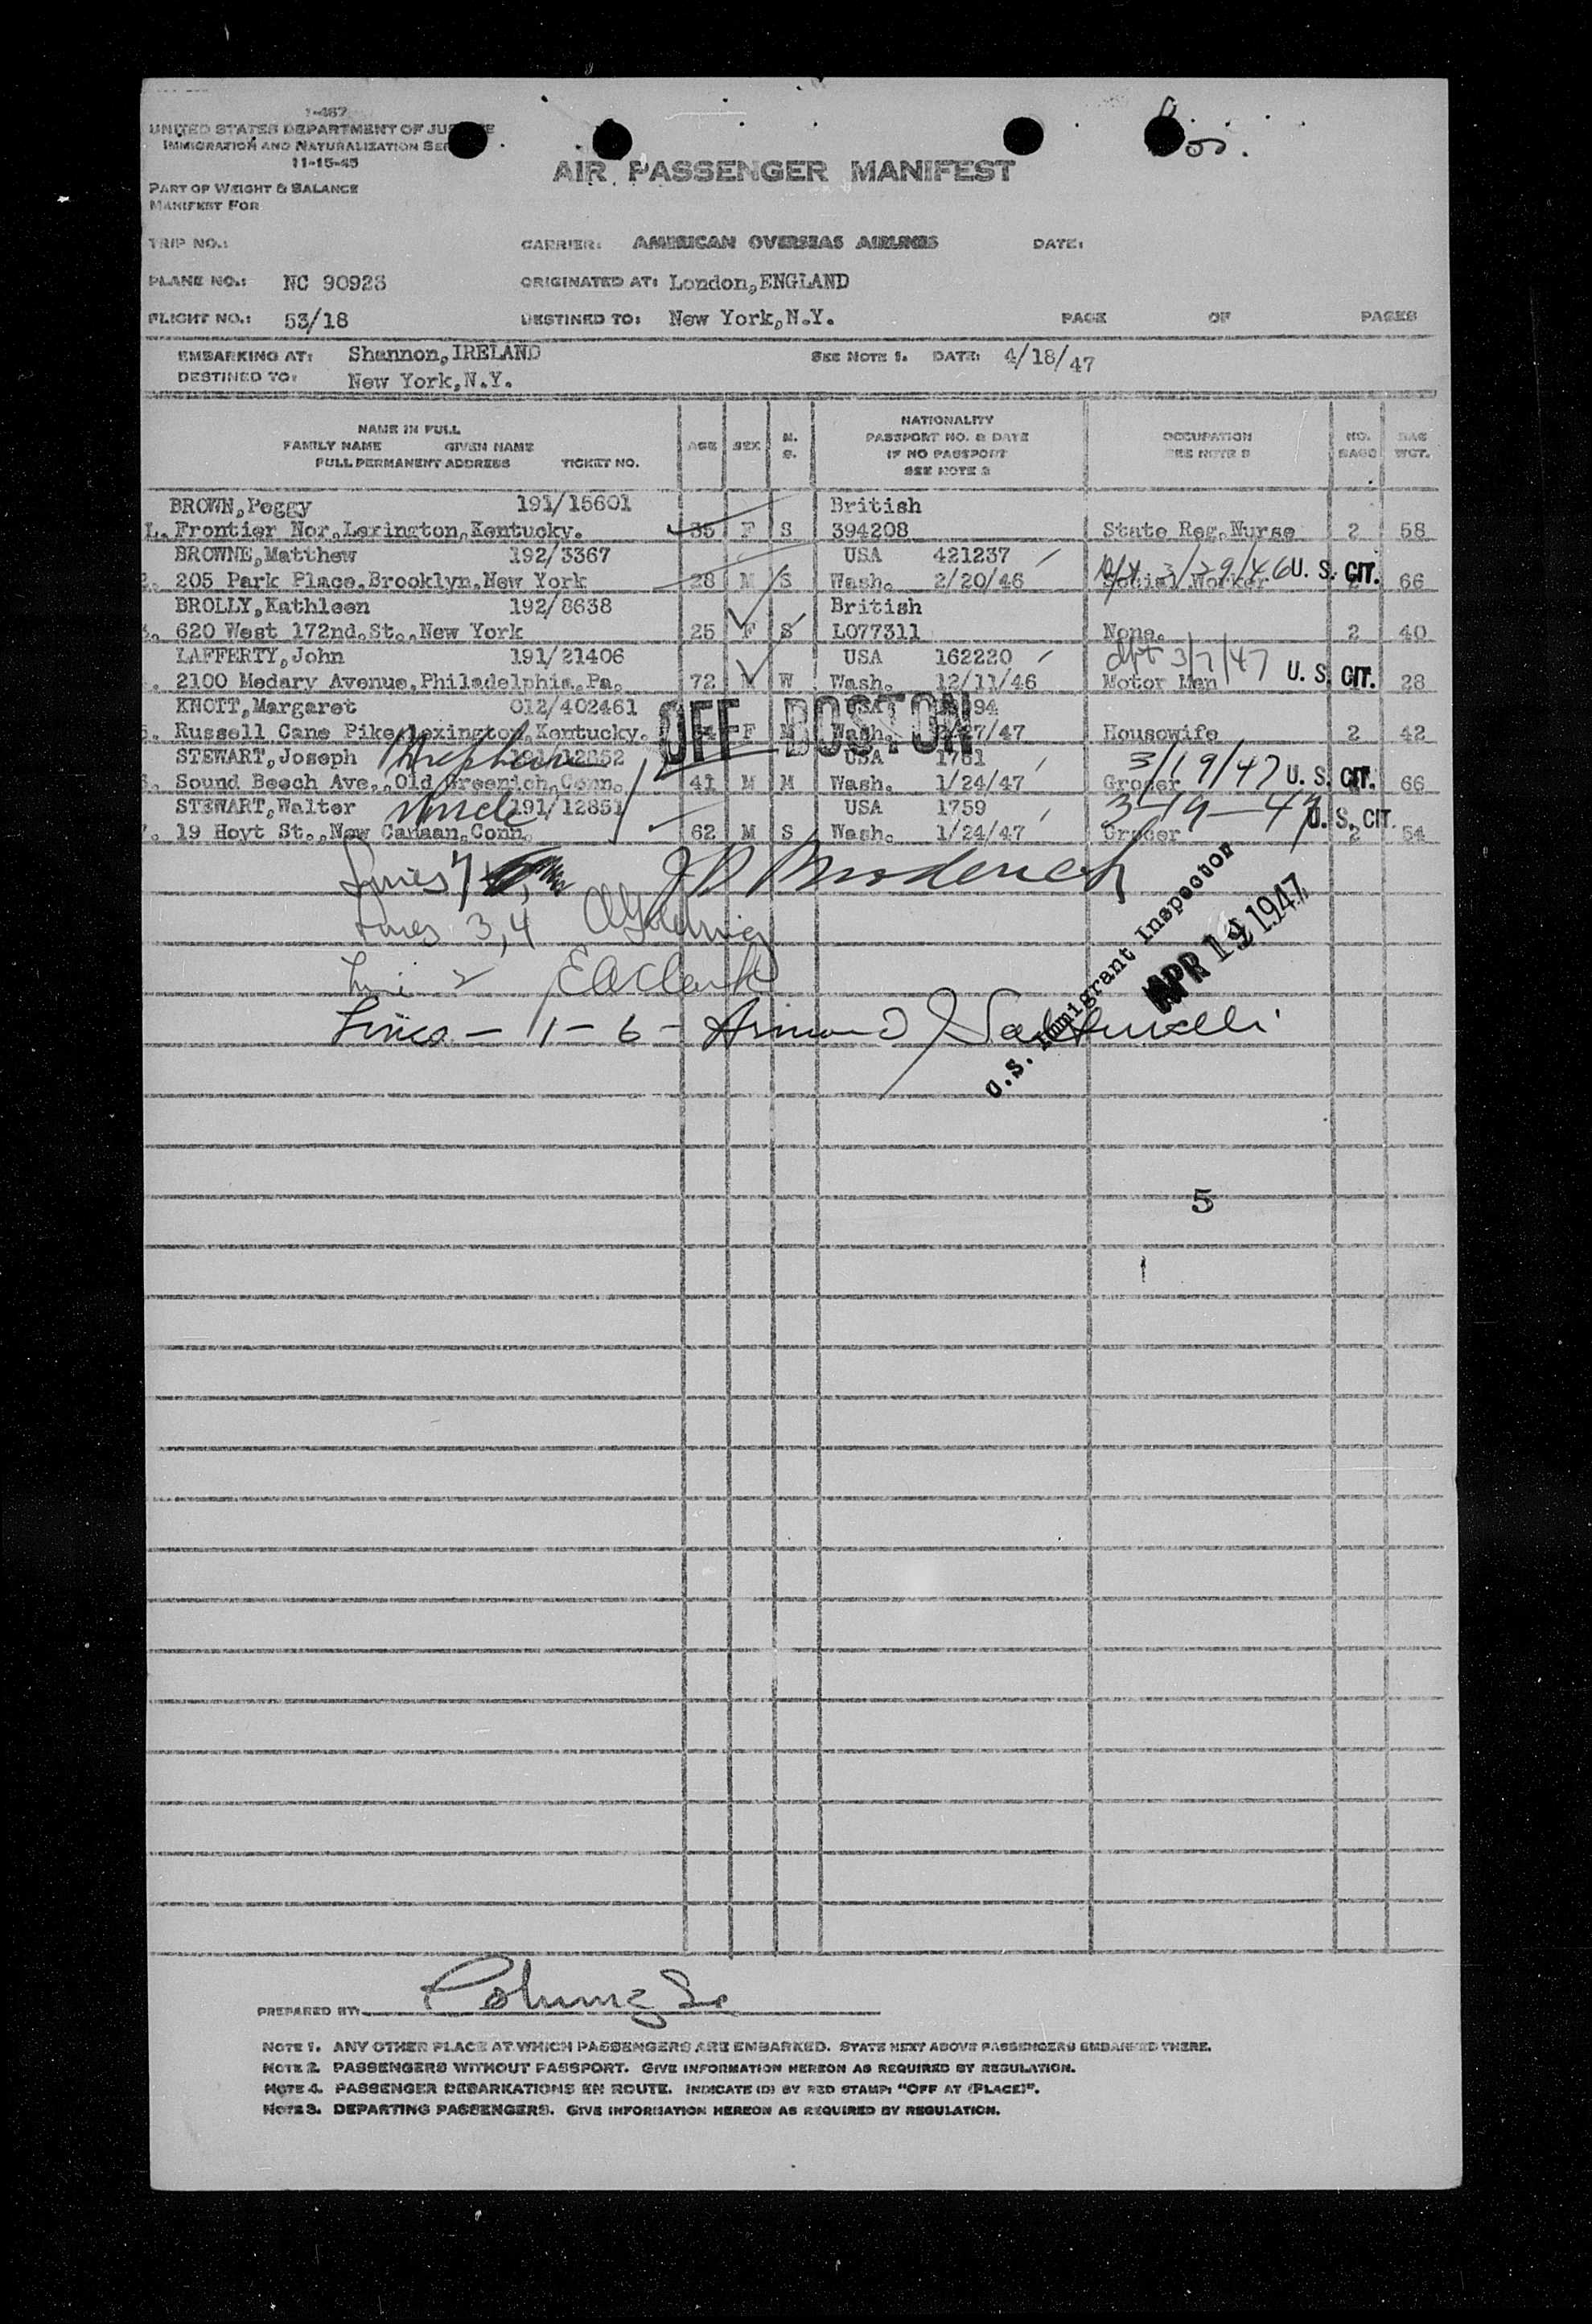 I-467
UNITED STATES DEPARTMENT OF JUSTICE
IMMIGRATION AND NATURALIZATION SER
11-15-45
AIR PASSENGER MANIFEST
PART OF WEIGHT & BALANCE
MANIFEST FOR
TRIP NO.: CARRIER: AMERICAN OVERSEAS AIRLINES DATE:
PLANE NO.: NC 90923 ORIGINATED AT: London,ENGLAND
FLIGHT NO.: 53/18 DESTINED TO: New York,N.Y. PAGE OF PAGES
EMBARKING AT: Shannon,IRELAND SEE NOTE 1. DATE: 4/18/47
DESTINED TO: New York,N.Y.
NAME IN FULL
FAMILY NAME GIVEN NAME
FULL PERMANENT ADDRESS TICKET NO.
AGE SEX M. S.
NATIONALITY
PASSPORT NO. & DATE
IF NO PASSPORT
SEE NOTE 2
OCCUPATION
SEE NOTE 3
NO. BAGS
BAG WGT.
BROWN,Peggy 191/15601 British
1. Frontier Nor,Lexington,Kentucky. 35 F S 394208 State Reg.Nurse 2 58
BROWNE,Matthew 192/3367 USA 421237 3/29/46 U. S. CIT.
2. 205 Park Place,Brooklyn,New York 28 M S Wash. 2/20/46 Social Worker 66
BROLLY,Kathleen 192/8638 British
3. 620 West 172nd.St.,New York 25 F S L077311 None. 2 40
LAFFERTY,John 191/21406 USA 162220 dpt 3/7/47 U. S. CIT.
2100 Medary Avenue,Philadelphia,Pa. 72 M W Wash. 12/11/46 Motor Men 28
KNOTT,Margaret 012/402461 94
5. Russell Cane Pike,Lexington,Kentucky. F M Wash. 7/47 Housewife 2 42
OFF BOSTON
STEWART,Joseph Nephew 191/12852 USA 1761 3/19/47 U. S. CIT.
6. Sound Beech Ave.,Old Greenich,Conn. 41 M M Wash. 1/24/47 Grocer 66
STEWART,Walter Uncle 191/12851 USA 1759 3-19-47 U. S. CIT.
7. 19 Hoyt St.,New Canaan,Conn. 62 M S Wash. 1/24/47 Grocer 2 54
Lines 7 J Broderick
Lines 3,4
Line 2 E A Clark
Lines - 1 - 6 - Armand J
U.S. Immigrant Inspector
APR 19 1947
5
PREPARED BY:
NOTE 1. ANY OTHER PLACE AT WHICH PASSENGERS ARE EMBARKED. STATE NEXT ABOVE PASSENGERS EMBARKED THERE.
NOTE 2. PASSENGERS WITHOUT PASSPORT. GIVE INFORMATION HEREON AS REQUIRED BY REGULATION.
NOTE 4. PASSENGER DEBARKATIONS EN ROUTE. INDICATE (D) BY RED STAMP: "OFF AT (PLACE)".
NOTE 3. DEPARTING PASSENGERS. GIVE INFORMATION HEREON AS REQUIRED BY REGULATION.